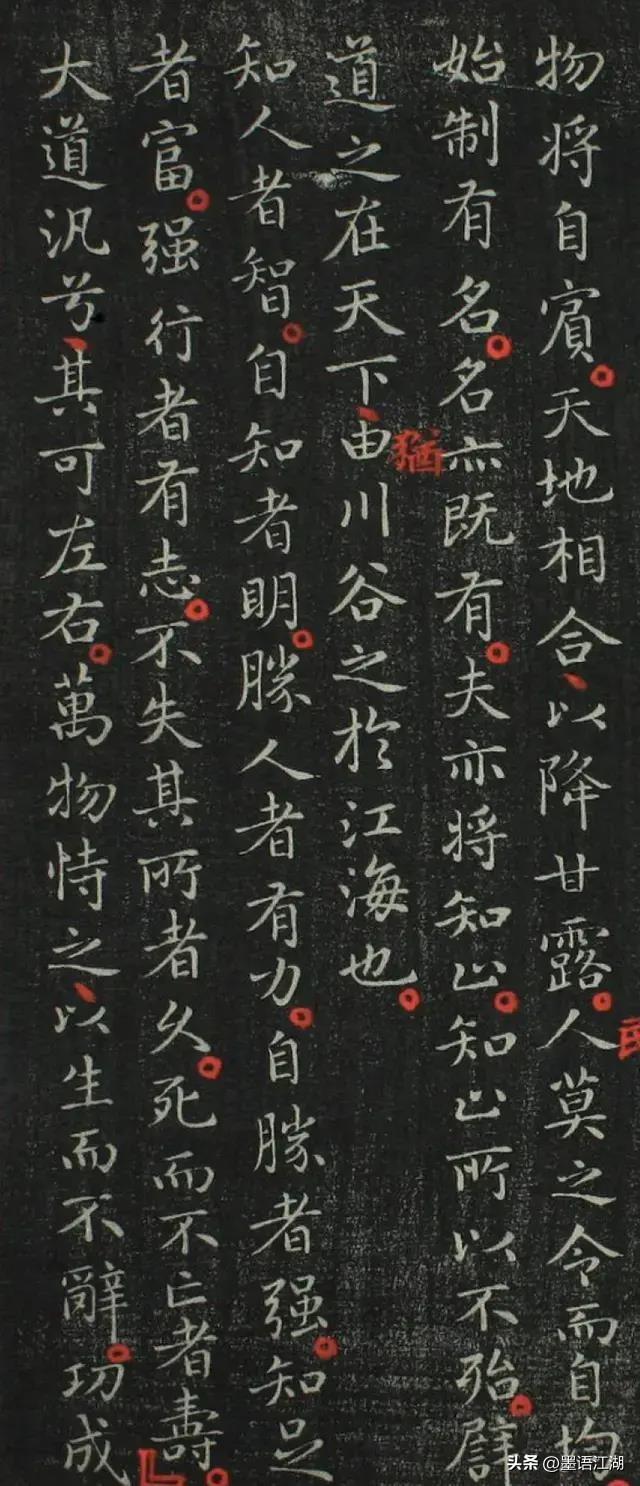 物将自賔。天地相合、以降甘露。人莫之令而自均。
始制有名。名亦既有。夫亦将知止。知止所以不殆。譬
道之在天下、由川谷之於江海也。
猶
民
知人者智。自知者明。勝人者有力。自勝者强。知足
者富。强行者有志。不失其所者久。死而不亡者壽。
大道汎兮、其可左右。萬物恃之、以生而不辭。功成
头条 @墨语江湖